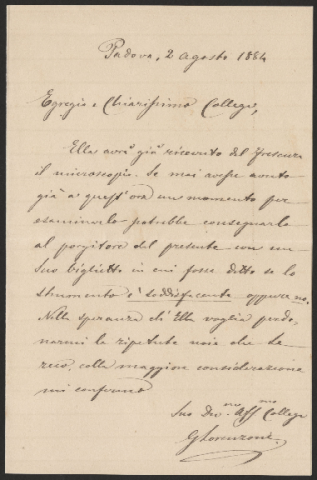 Padova, 2 agosto 1884
Egregio e Chiarissimo Collega,
Ella avrà già ricevuto dal
il microscopio. Se mai avesse avuto
già a quest'ora un momento per
esaminarlo potrebbe consegnarlo
al porgitore del presente con un
suo biglietto in cui fosse detto se lo
strumento è soddisfacente oppure no.
Nella speranza ch'Ella voglia perdo-
narmi le ripetute noie che Le
reco, colla maggiore considerazione
mi confermo
Suo Dev.mo Aff.mo Collega
GLorenzoni